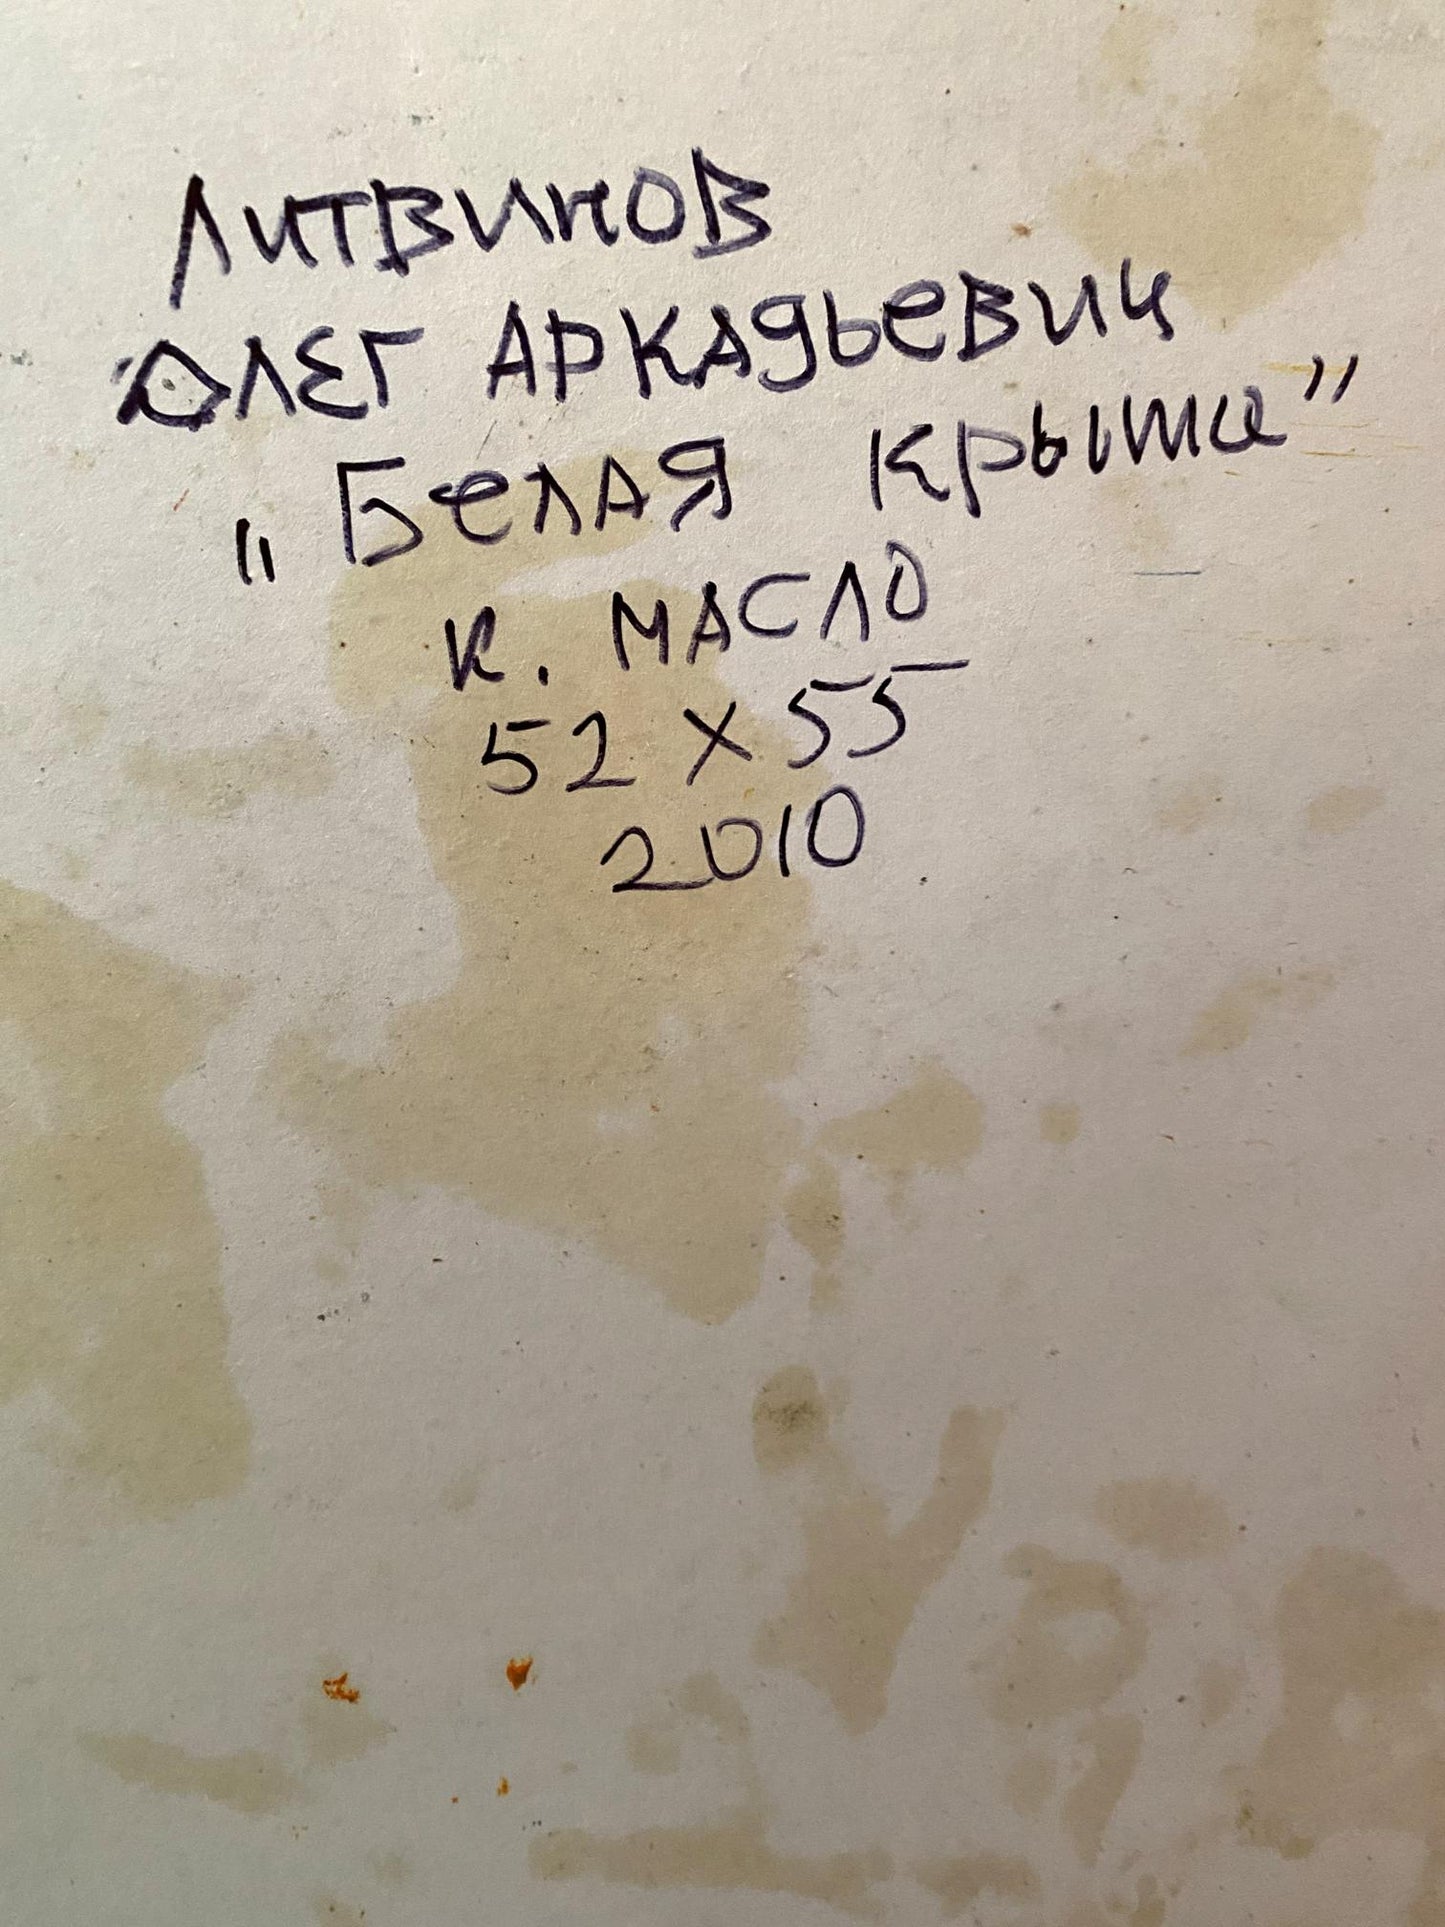 Литвинов
Олег Аркадьевич
"Белая крыша"
к. масло
52 x 55
2010